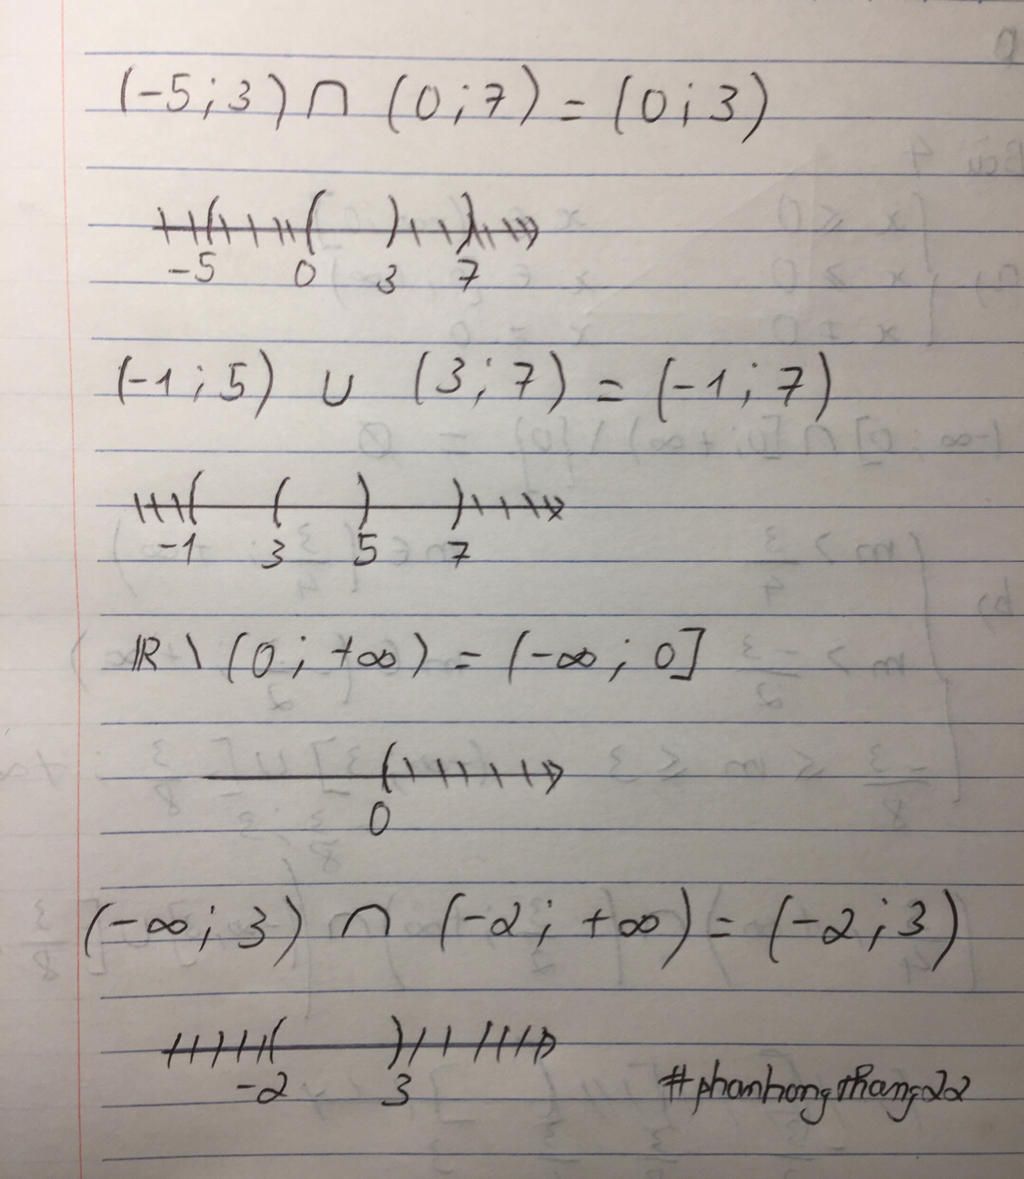 (-5;3) ∩ (0;7) = (0;3)
-5 0 3 7
(-1;5) ∪ (3;7) = (-1;7)
-1 3 5 7
ℝ \ (0; +∞) = (-∞; 0]
0
(-∞; 3) ∩ (-2; +∞) = (-2;3)
-2 3
#phanhongthang22